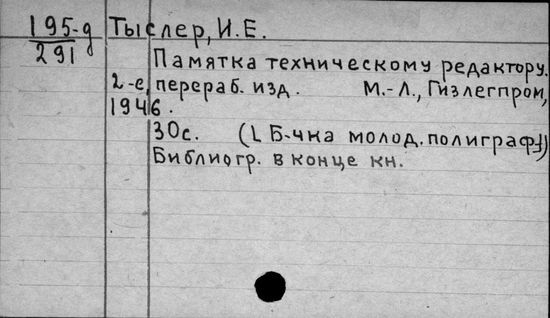 195-д Тыслер, И.Е.
291
Памятка техническому редактору.
2-е, перераб. изд. М.-Л., Гизлегпром,
1946.
30с. (Б-чка молод. полиграф
Библиогр. в конце кн.